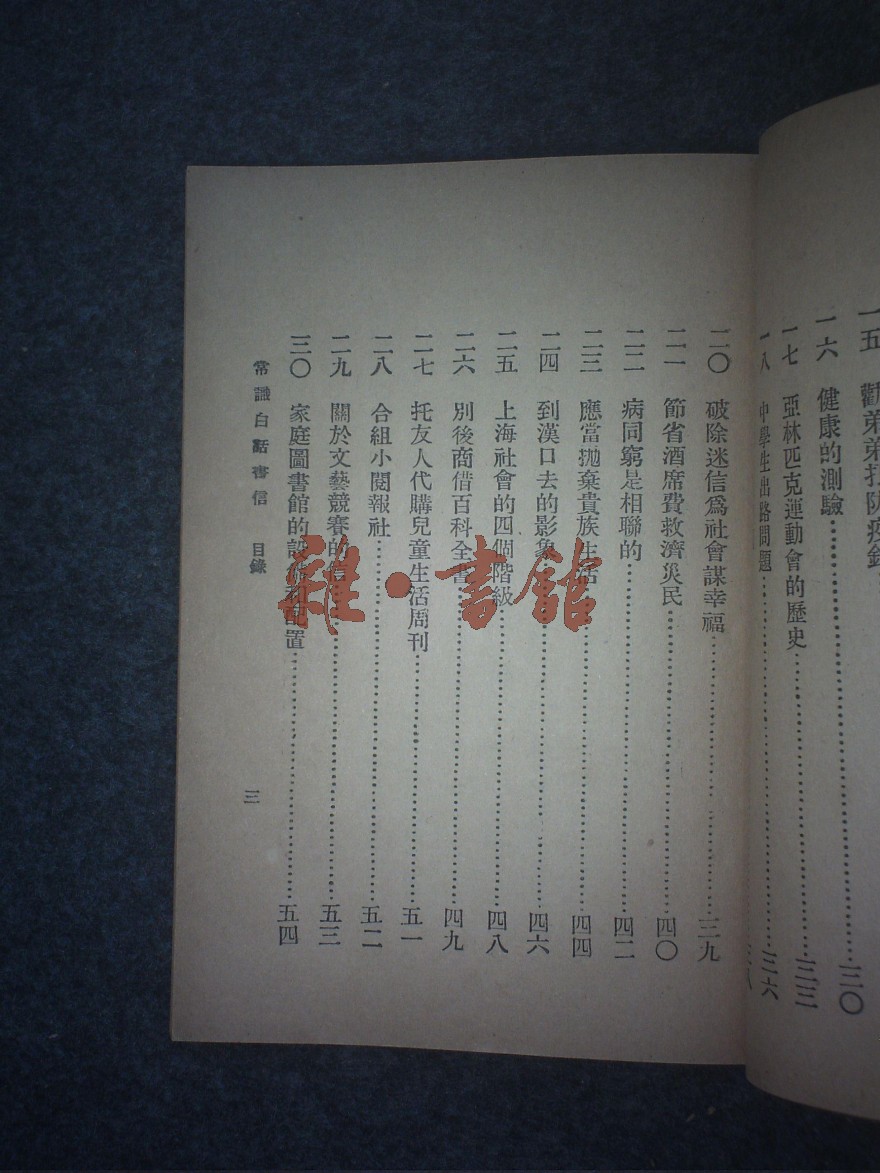 一五　勸弟弟打防疫針
一六　健康的測驗………三〇
一七　亞林匹克運動會的歷史………三三
一八　中學生出路問題………三六
三八
二〇　破除迷信爲社會謀幸福………三九
二一　節省酒席費救濟災民………四〇
二二　病同窮是相聯的………四二
二三　應當拋棄貴族生活………四四
二四　到漢口去的影象………四六
二五　上海社會的四個階級………四八
二六　別後商借百科全書………四九
二七　托友人代購兒童生活周刊………五一
二八　合組小閱報社………五二
二九　關於文藝競賽的信………五三
三〇　家庭圖書館的設備和配置………五四
常識白話書信　目錄
三
雜·書館